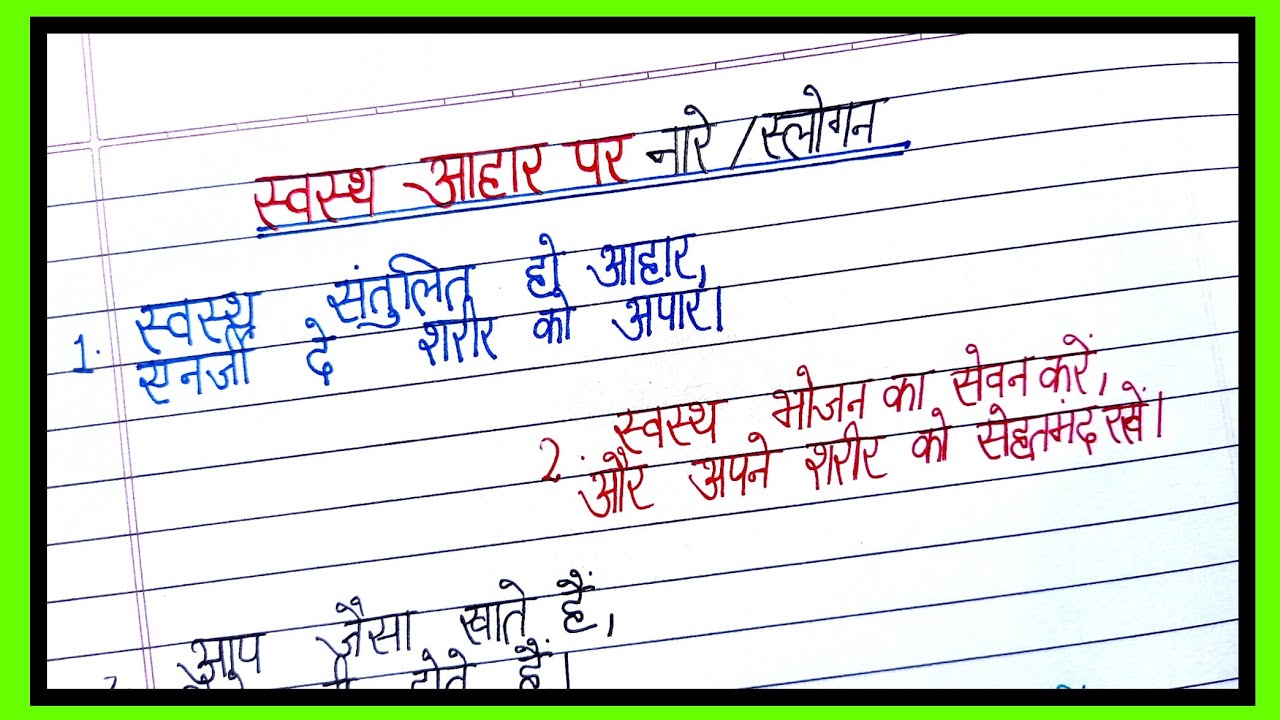 स्वस्थ आहार पर नारे /स्लोगन
1. स्वस्थ संतुलित हो आहार,
एनर्जी दे शरीर को अपार।
2. स्वस्थ भोजन का सेवन करें,
और अपने शरीर को सेहतमंद रखें।
आप जैसा खाते हैं,
होते हैं।